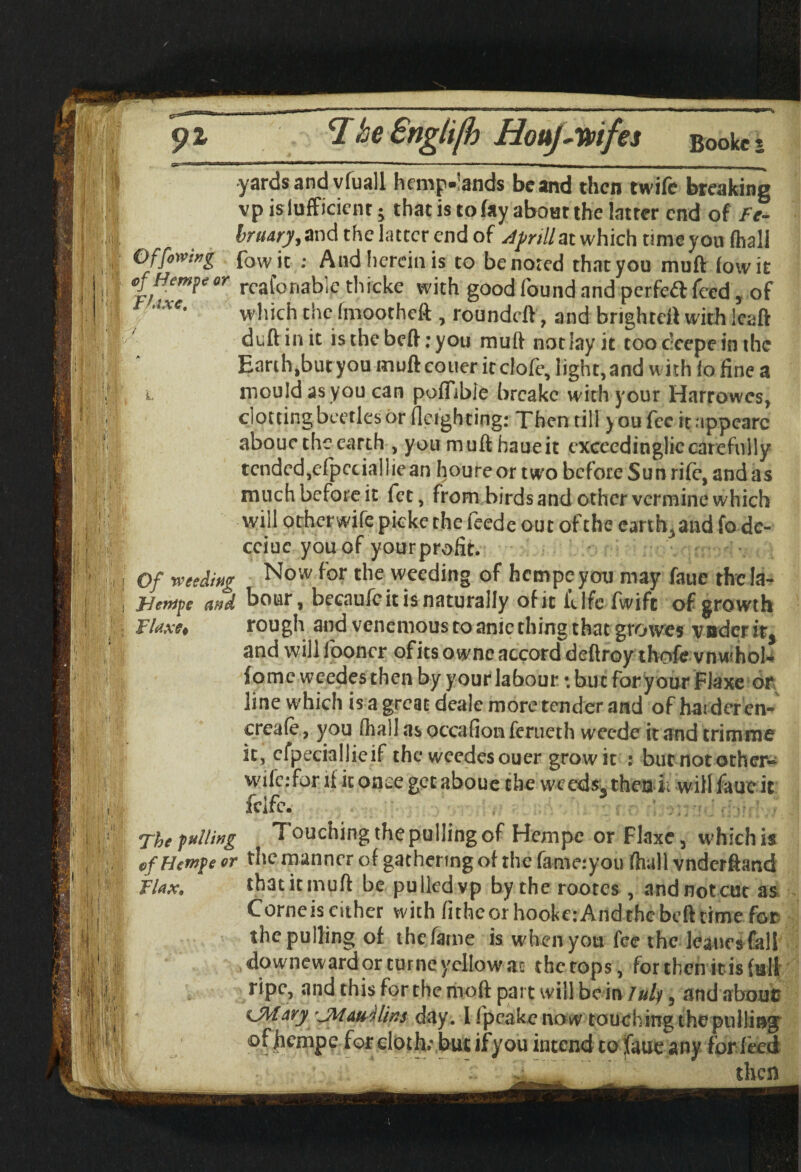 92 The Engliſh Houſ-wifes Booke 2
yards and vſuall hemp-lands be and then twiſe breaking
vp is ſufficient; that is to ſay about the latter end of Fe-
bruary, and the latter end of Aprill at which time you ſhall
Of ſowing
of Hempe or
Flaxe.
ſow it : And herein is to be noted that you muſt ſow it
reaſonable thicke with good ſound and perfect ſeed, of
which the ſmootheſt , roundeſt, and brighteſt with leaſt
duſt in it is the beſt: you muſt not lay it too deepe in the
Earth, but you muſt couer it cloſe, light, and with ſo fine a
mould as you can poſſible breake with your Harrowes,
clotting beetles or ſleighting: Then till you ſee it appeare
aboue the earth , you muſt haue it exceedinglie carefully
tended, eſpeciallie an houre or two before Sun riſe, and as
much before it ſet, from birds and other vermine which
will otherwiſe picke the ſeede out of the earth, and ſo de-
ceiue you of your profit.
Of weeding
Hempe and
Flaxe.
Now for the weeding of hempe you may ſaue the la-
bour, becauſe it is naturally of it ſelfe ſwift of growth
rough and venemous to anie thing that growes vnder it,
and will ſooner of its owne accord deſtroy thoſe vnwhol-
ſome weedes then by your labour : but for your Flaxe or
line which is a great deale more tender and of harder en-
creaſe, you ſhall as occaſion ſerueth weede it and trimme
it, eſpeciallie if the weedes ouer grow it : but not other-
wiſe: for if it once get aboue the weeds, then it will ſaue it
ſelfe.
The pulling
of Hempe or
Flax.
Touching the pulling of Hempe or Flaxe, which is
the manner of gathering of the ſame: you ſhall vnderſtand
that it muſt be pulled vp by the rootes , and not cut as
Corne is either with ſithe or hooke: And the beſt time for
the pulling of the ſame is when you ſee the leaues fall
downeward or turne yellow at the tops, for then it is full
ripe, and this for the moſt part will be in Iuly, and about
Mary Maudlins day. I ſpeake now touching the pulling
of hempe for cloth: but if you intend to ſaue any for ſeed
then